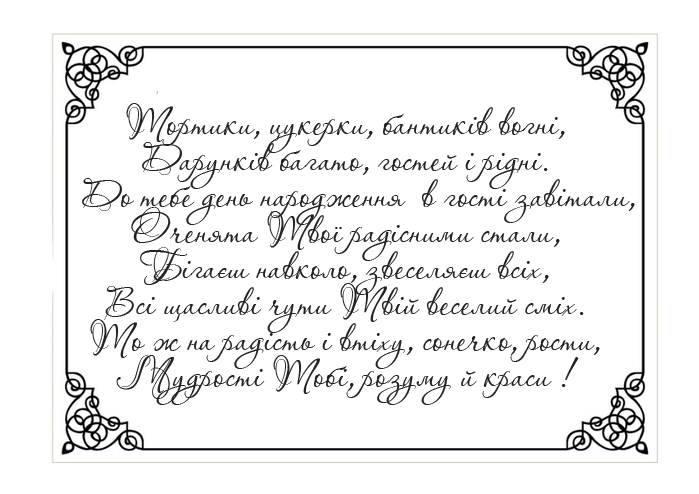 Тортики, цукерки, бантиків вогні,
Дарунків багато, гостей і рідні.
До тебе день народження в гості завітали,
Оченята Твої радісними стали,
Бігаєш навколо, звеселяєш всіх,
Всі щасливі чути Твій веселий сміх.
То ж на радість і втіху, сонечко, рости,
Мудрості Тобі, розуму й краси !